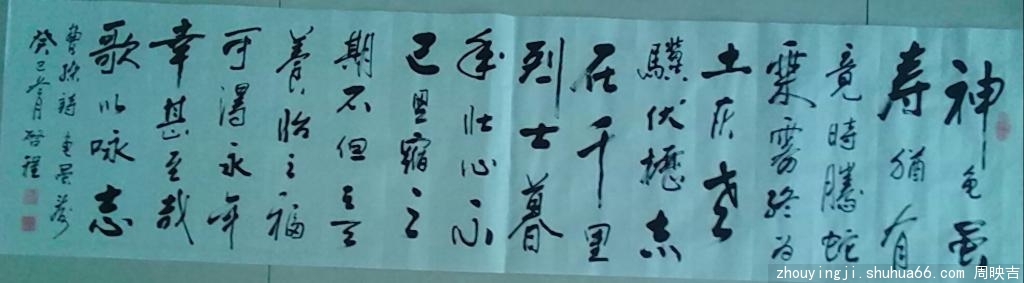 神龟虽
寿猶有
竟時騰蛇
乘雾终为
土灰老
驥伏櫪志
在千里
烈士暮
年壮心不
已盈縮之
期不但在天
養怡之福
可得永年
幸甚至哉
歌以咏志
曹操詩龟虽寿
癸巳月
zhouyingji.shuhua66.com 周映吉